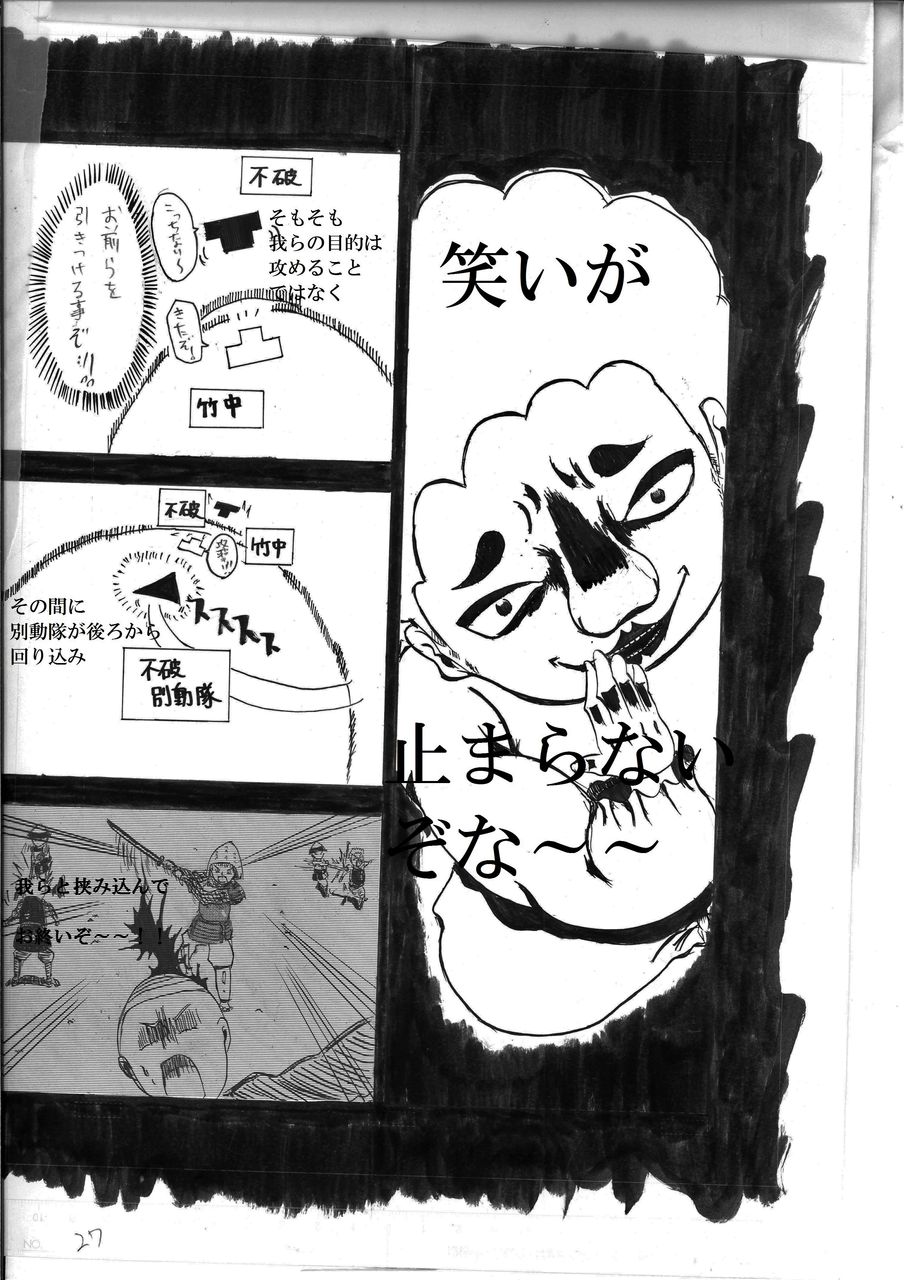 笑いが
止まらない
ぞな〜〜
不破
そもそも
我らの目的は
攻めること
ではなく
こっちなり〜
きたぞ!
お前らを
引きつける事ぞ!!
竹中
不破
竹中
攻撃!!
その間に
別動隊が後ろから
回り込み
ススススス
不破
別動隊
我らと挟み込んで
お終いぞ〜〜!!
NO.
27